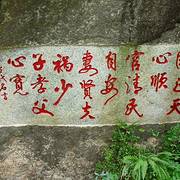 国正天
心顺
官清民
自安
妻贤夫
祸少
子孝父
心宽